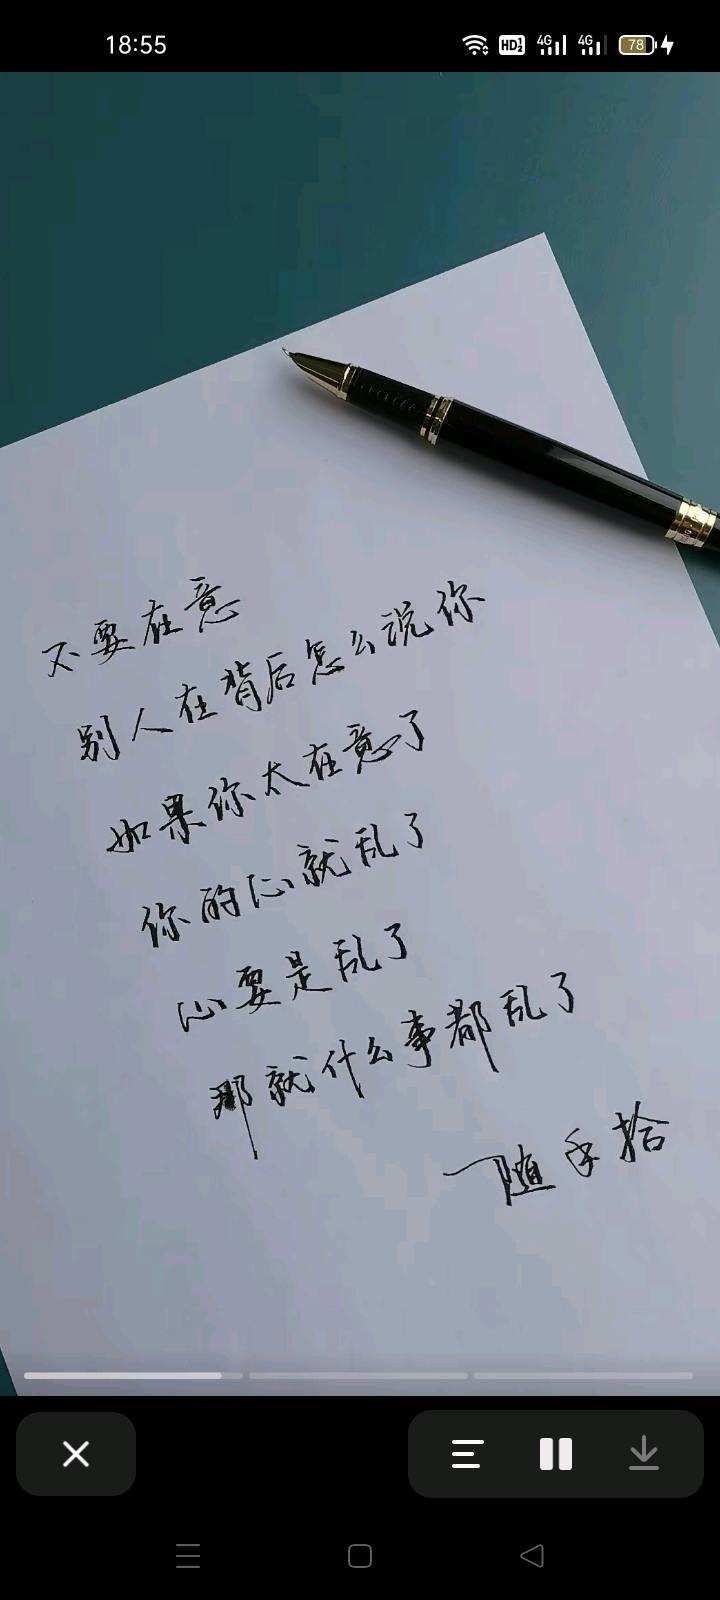 18:55
HD 1 2 4G 4G 78
不要在意
别人在背后怎么说你
如果你太在意了
你的心就乱了
心要是乱了
那就什么事都乱了
一随手拾